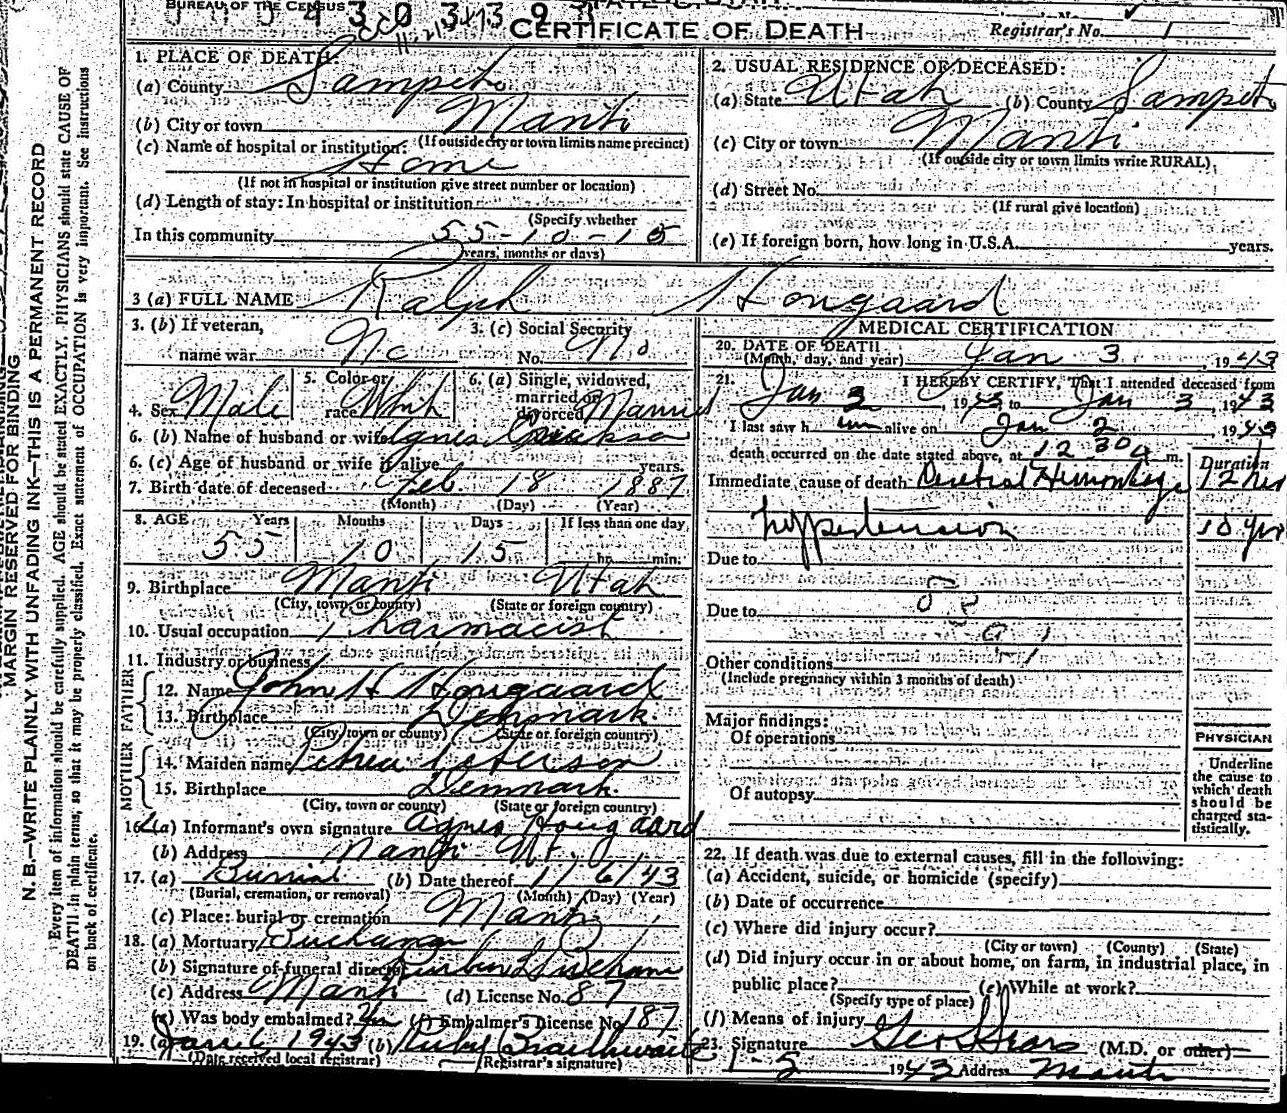 BUREAU OF THE CENSUS
CERTIFICATE OF DEATH
Registrar's No. 1
1. PLACE OF DEATH:
(a) County Sanpete
(b) City or town Manti
(If outside city or town limits name precinct)
(c) Name of hospital or institution:
Home
(If not in hospital or institution give street number or location)
(d) Length of stay: In hospital or institution
(Specify whether
In this community 55-10-15
years, months or days)
2. USUAL RESIDENCE OF DECEASED:
(a) State Utah (b) County Sanpete
(c) City or town Manti
(If outside city or town limits write RURAL)
(d) Street No.
(If rural give location)
(e) If foreign born, how long in U.S.A. years.
3 (a) FULL NAME Ralph Hougaard
3. (b) If veteran, name war No
3. (c) Social Security No. No
4. Sex Male
5. Color or race Wht
6. (a) Single, widowed, married or divorced Married
6. (b) Name of husband or wife Agnes
6. (c) Age of husband or wife if alive years.
7. Birth date of deceased Feb 18 1887
(Month) (Day) (Year)
8. AGE Years Months Days If less than one day
55 10 15 hr. min.
9. Birthplace Manti Utah
(City, town or county) (State or foreign country)
10. Usual occupation Pharmacist
11. Industry or business
FATHER
12. Name John H Hougaard
13. Birthplace Denmark
(City, town or county) (State or foreign country)
MOTHER
14. Maiden name Petrea Peterson
15. Birthplace Denmark
(City, town or county) (State or foreign country)
16. (a) Informant's own signature Agnes Hougaard
(b) Address Manti Ut.
17. (a) Burial (b) Date thereof 1/6/43
(Burial, cremation, or removal) (Month) (Day) (Year)
(c) Place: burial or cremation Manti
18. (a) Mortuary
(b) Signature of funeral director
(c) Address Manti (d) License No. 87
(e) Was body embalmed? Yes (f) Embalmer's License No. 187
19. (a) Jan 6 1943 (b) Ruby Braithwaite
(Date received local registrar) (Registrar's signature)
MEDICAL CERTIFICATION
20. DATE OF DEATH Jan 3 1943
(Month, day, and year)
21. I HEREBY CERTIFY, That I attended deceased from
Jan 2, 1943 to Jan 3, 1943
I last saw him alive on Jan 2 1943
death occurred on the date stated above, at 12 30 a m.
Duration
Immediate cause of death Cerebral Hemorrhage 12 hrs
hypertension 10 yrs
Due to
Due to
Other conditions
(Include pregnancy within 3 months of death)
Major findings:
Of operations
Of autopsy
PHYSICIAN
Underline
the cause to
which death
should be
charged sta-
tistically.
22. If death was due to external causes, fill in the following:
(a) Accident, suicide, or homicide (specify)
(b) Date of occurrence
(c) Where did injury occur?
(City or town) (County) (State)
(d) Did injury occur in or about home, on farm, in industrial place, in
public place? (e) While at work?
(Specify type of place)
(f) Means of Injury
23. Signature Geo L Sears (M.D. or other)
1-5 1943 Address Manti
MARGIN RESERVED FOR BINDING
N. B.—WRITE PLAINLY WITH UNFADING INK—THIS IS A PERMANENT RECORD
Every item of information should be carefully supplied. AGE should be stated EXACTLY. PHYSICIANS should state CAUSE OF
DEATH in plain terms, so that it may be properly classified. Exact statement of OCCUPATION is very important. See instructions
on back of certificate.